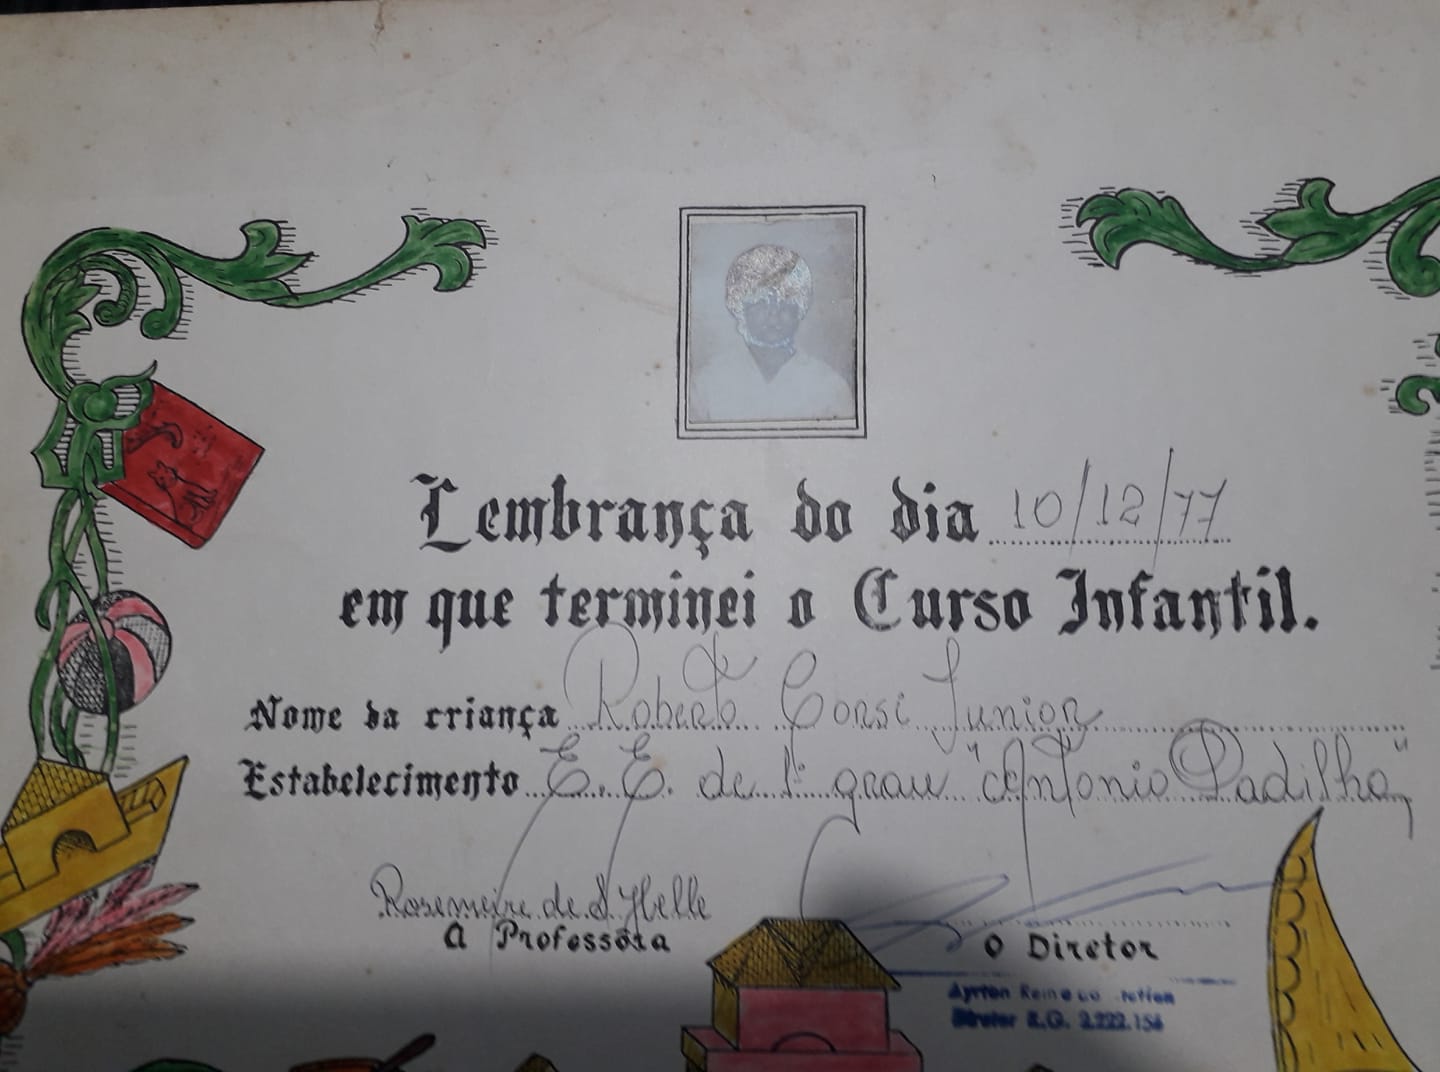 Lembrança do dia 10/12/77
em que terminei o Curso Infantil.
Nome da criança Roberto Corsi Junior
Estabelecimento E. E. de 1º grau "Antonio Padilha"
Rosemeire de S.
A Professora
O Diretor
Ayrton
Diretor R.G. 2.222.156